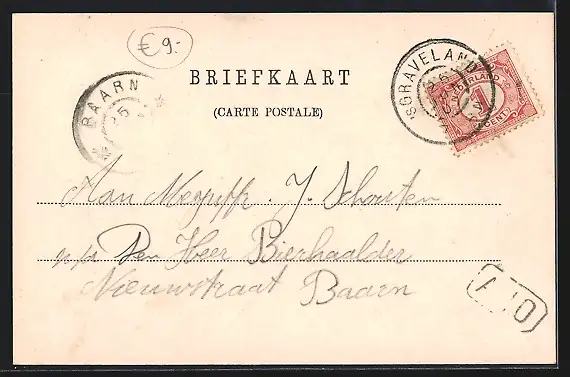 € 9.-
BRIEFKAART
(CARTE POSTALE)
BAARN
SGRAVELAND
NEDERLAND
1
CENT
Aan Mejuffr. J. Schouten
p/a Den Heer Bierhaalder
Nieuwstraat Baarn